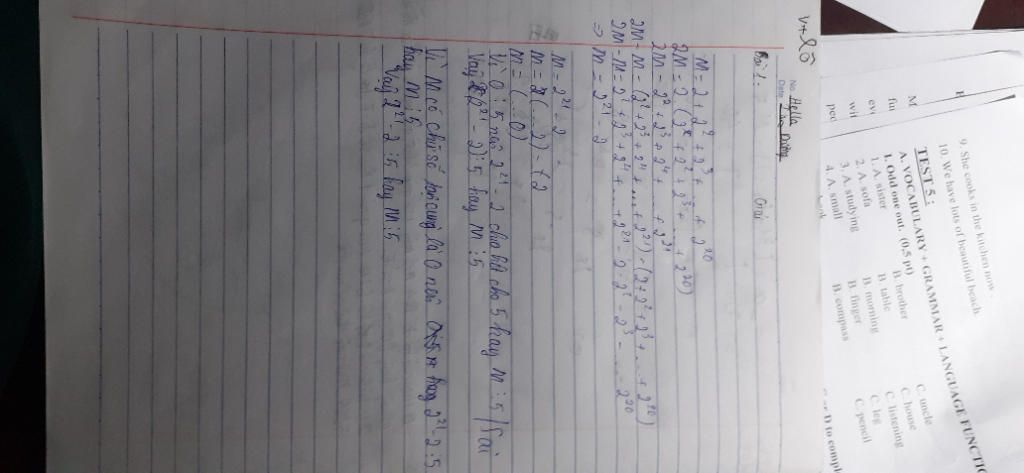 V+LÔ
No. Hella
Date
Bài 1: Giải
M = 2 + 2² + 2³ + ... + 2²⁰
2M = 2 (2 + 2² + 2³ + ... + 2²⁰)
2M = 2² + 2³ + 2⁴ + ... + 2²¹
2M - M = (2² + 2³ + 2⁴ + ... + 2²¹) - (2 + 2² + 2³ + ... + 2²⁰)
2M - M = 2² + 2³ + 2⁴ + ... + 2²¹ - 2 - 2² - 2³ - ... - 2²⁰
⇒ M = 2²¹ - 2
M = 2²¹ - 2
M = (...2) - 2
M = (...0)
Vì 0 ⋮ 5 nên 2²¹ - 2 chia hết cho 5 hay M ⋮ 5 / Sai
Vậy (2²¹ - 2) ⋮ 5 hay M ⋮ 5
Vì M có chữ số tận cùng là 0 nên hay 2²¹ - 2 ⋮ 5
hay M ⋮ 5
Vậy 2²¹ - 2 ⋮ 5 hay M ⋮ 5
9. She cooks in the kitchen now.
10. We have lots of beautiful beach.
TEST 5 :
A. VOCABULARY + GRAMMAR + LANGUAGE FUNCTI
I. Odd one out. (0,5 pt)
1. A. sister B. brother C. uncle
2. A. sofa B. table C. house
3. A. studying B. morning C. listening
4. A. small B. finger C. leg
B. compass C. pencil
D to compl